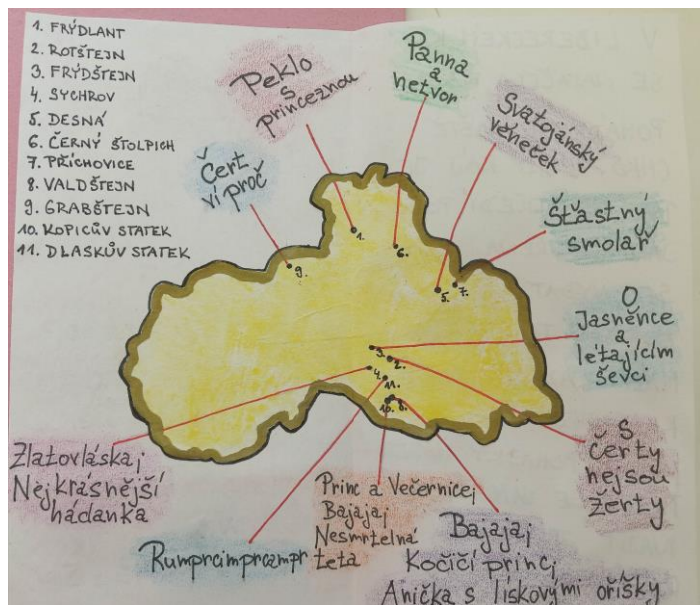 1. FRÝDLANT
2. ROTŠTEJN
3. FRÝDŠTEJN
4. SYCHROV
5. DESNÁ
6. ČERNÝ ŠTOLPICH
7. PŘÍCHOVICE
8. VALDŠTEJN
9. GRABŠTEJN
10. KOPICŮV STATEK
11. DLASKŮV STATEK
Peklo
s
princeznou
Panna
a
netvor
Svatojánský
věneček
Čert
ví proč
Šťastný
smolař
O
Jasněnce
a
létajícím
ševci
S
čerty
nejsou
žerty
1.
6.
9.
5.
7.
3.
2.
4.
11.
10.
8.
Zlatovláska;
Nejkrásnější
hádanka
Rumprcimprcampr
Princ a Večernice;
Bajaja;
Nesmrtelná
teta
Bajaja;
Kočičí princ;
Anička s lískovými oříšky